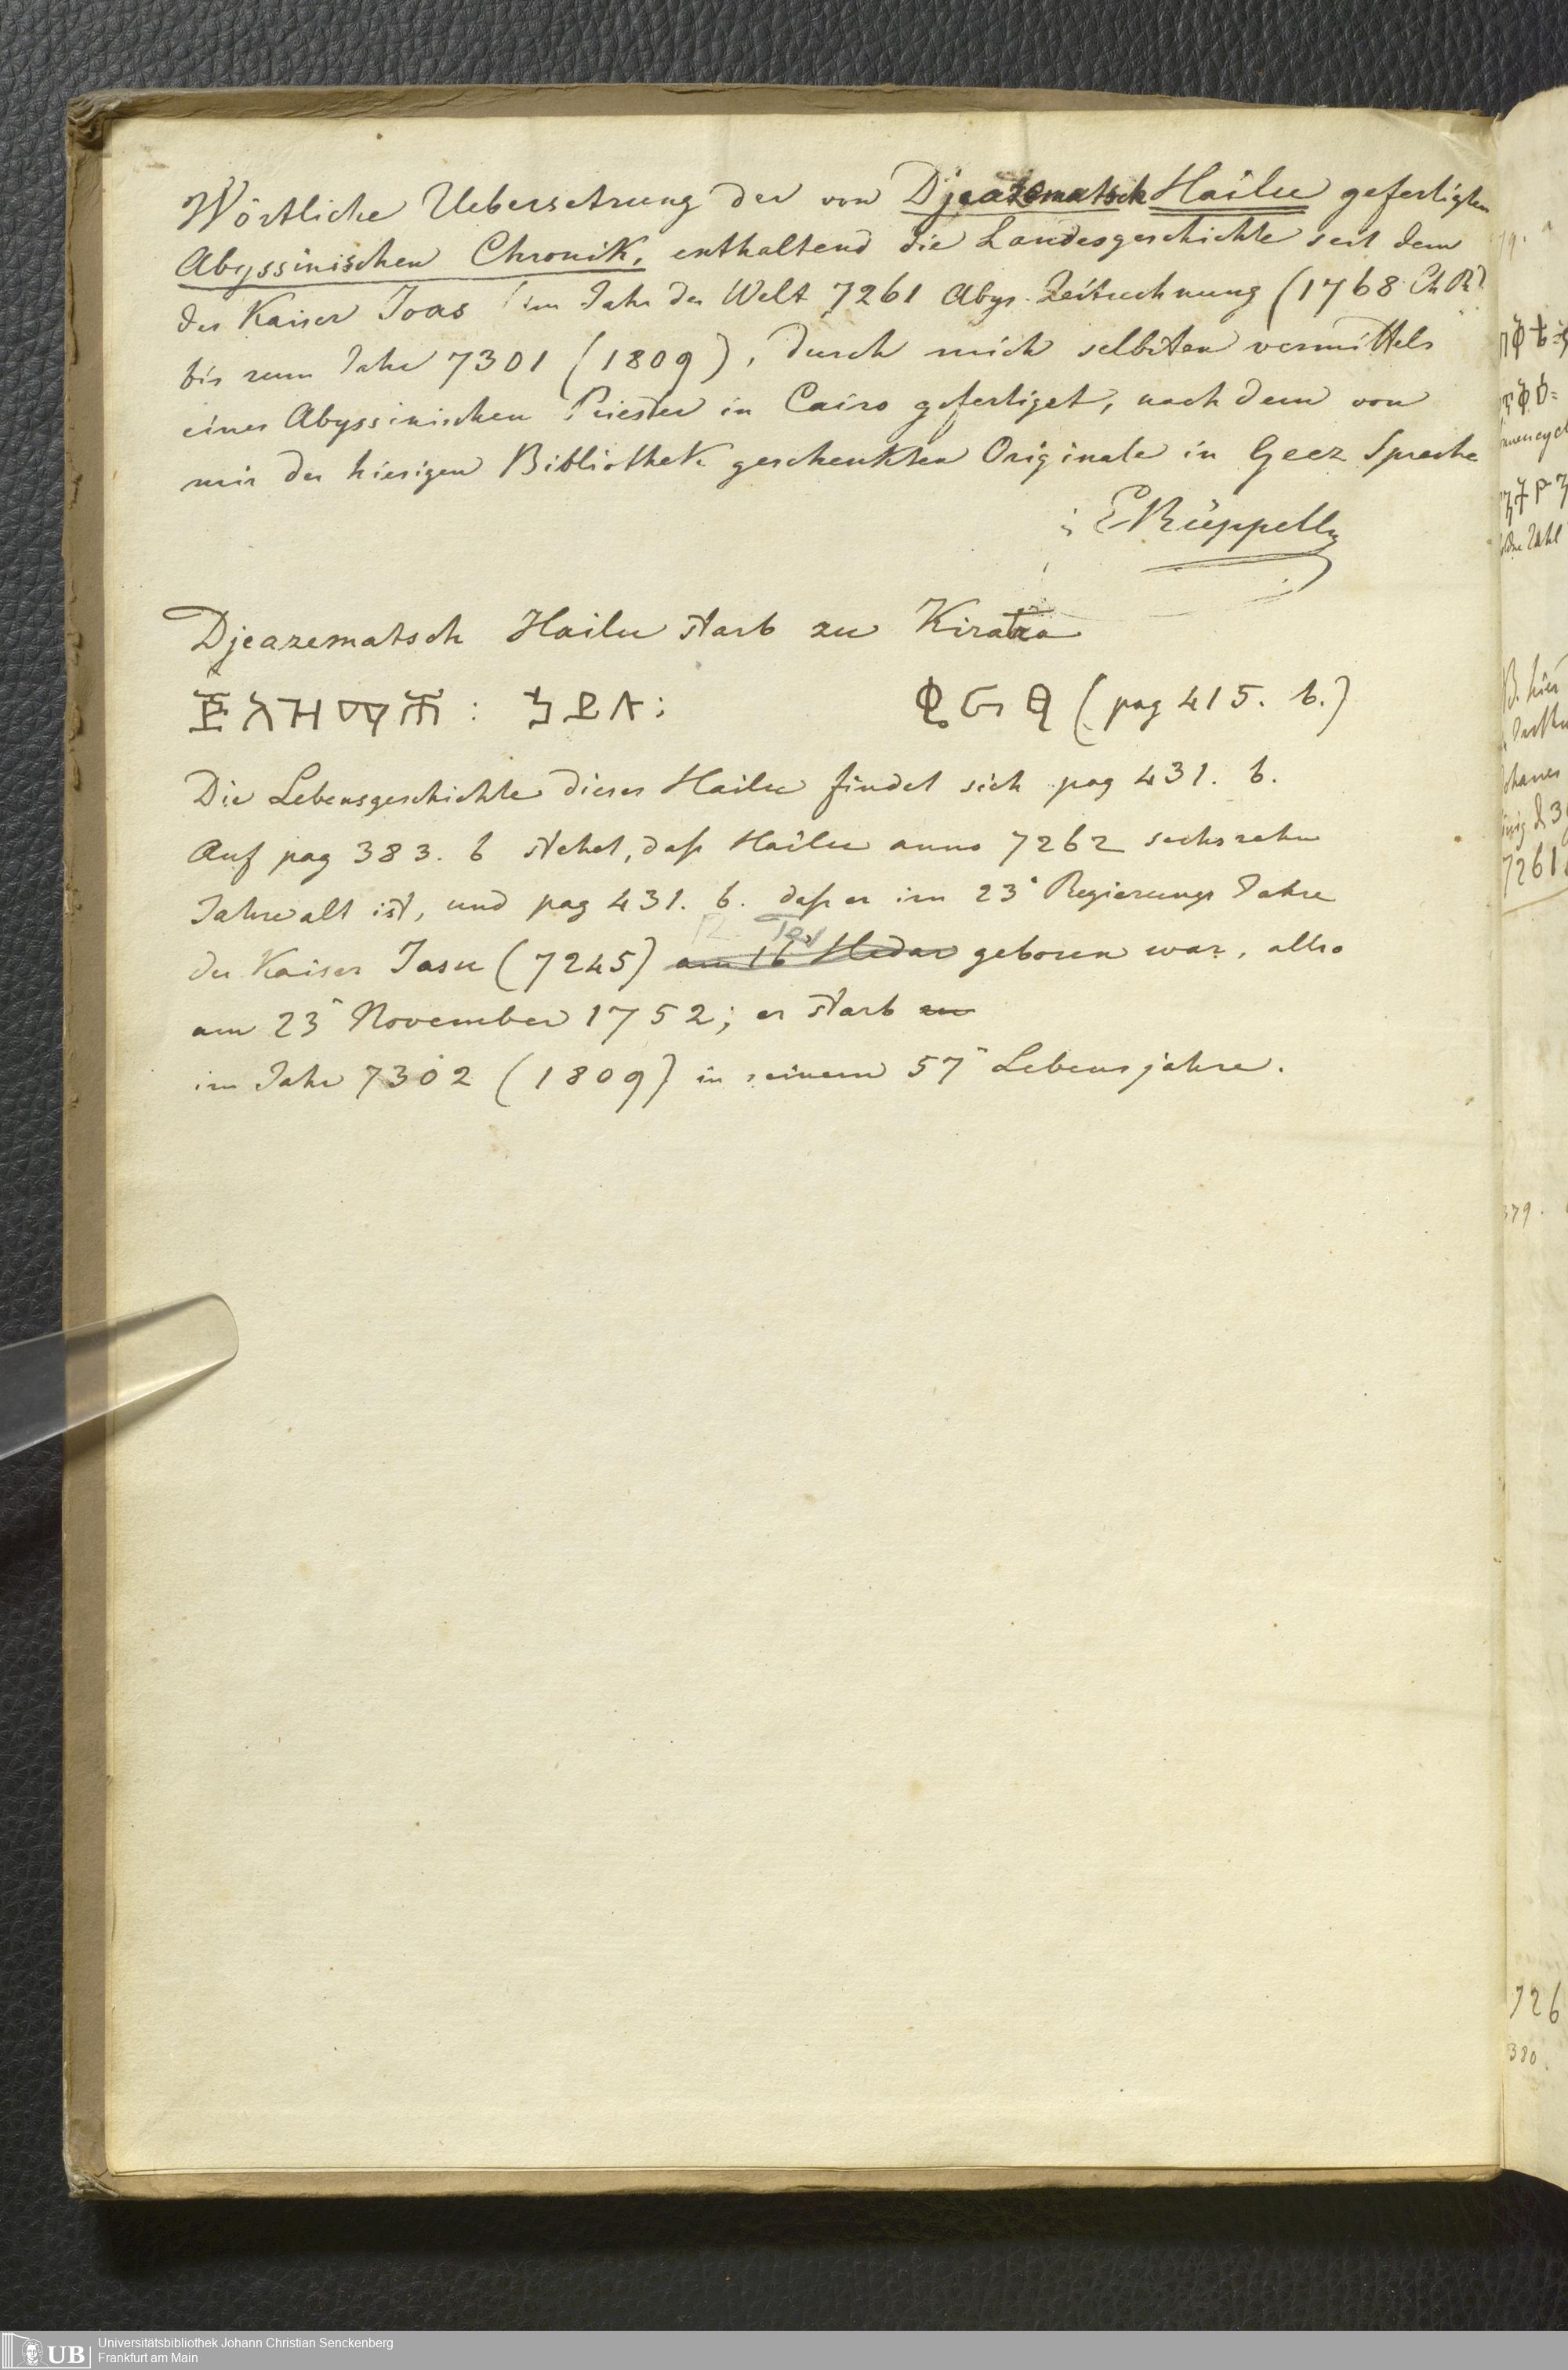 Wörtliche Uebersetzung der von Djeazematsch Hailu gefertigten
Abyssinischen Chronik, enthaltend die Landesgeschichte seit dem
des Kaiser Joas im Jahr der Welt 7261 Abys. Zeitrechnung (1768 Ch. R.)
bis zum Jahr 7301 (1809), durch mich selbsten vermittels
eines Abyssinischen Priester in Cairo gefertiget, nach dem von
mir der hiesigen Bibliothek geschenkten Originale in Geez Sprache
E Rüppell
Djeazematsch Hailu starb zu Kiratza
ደጃዝማች : ኃይሉ: ቊራጻ (pag 415. b.)
Die Lebensgeschichte dieses Hailu findet sich pag 431. b.
Auf pag 383. b stehet, daß Hailu anno 7262 sechszehn
Jahre alt ist, und pag 431. b. daß er im 23" Regierungs Jahre
des Kaiser Jasu (7245) am 16 Hedar geboren war, also
am 23" November 1752; er starb zu
im Jahr 7302 (1809) in seinem 57" Lebensjahre.
7261
379.
726
380
UB
Universitätsbibliothek Johann Christian Senckenberg
Frankfurt am Main